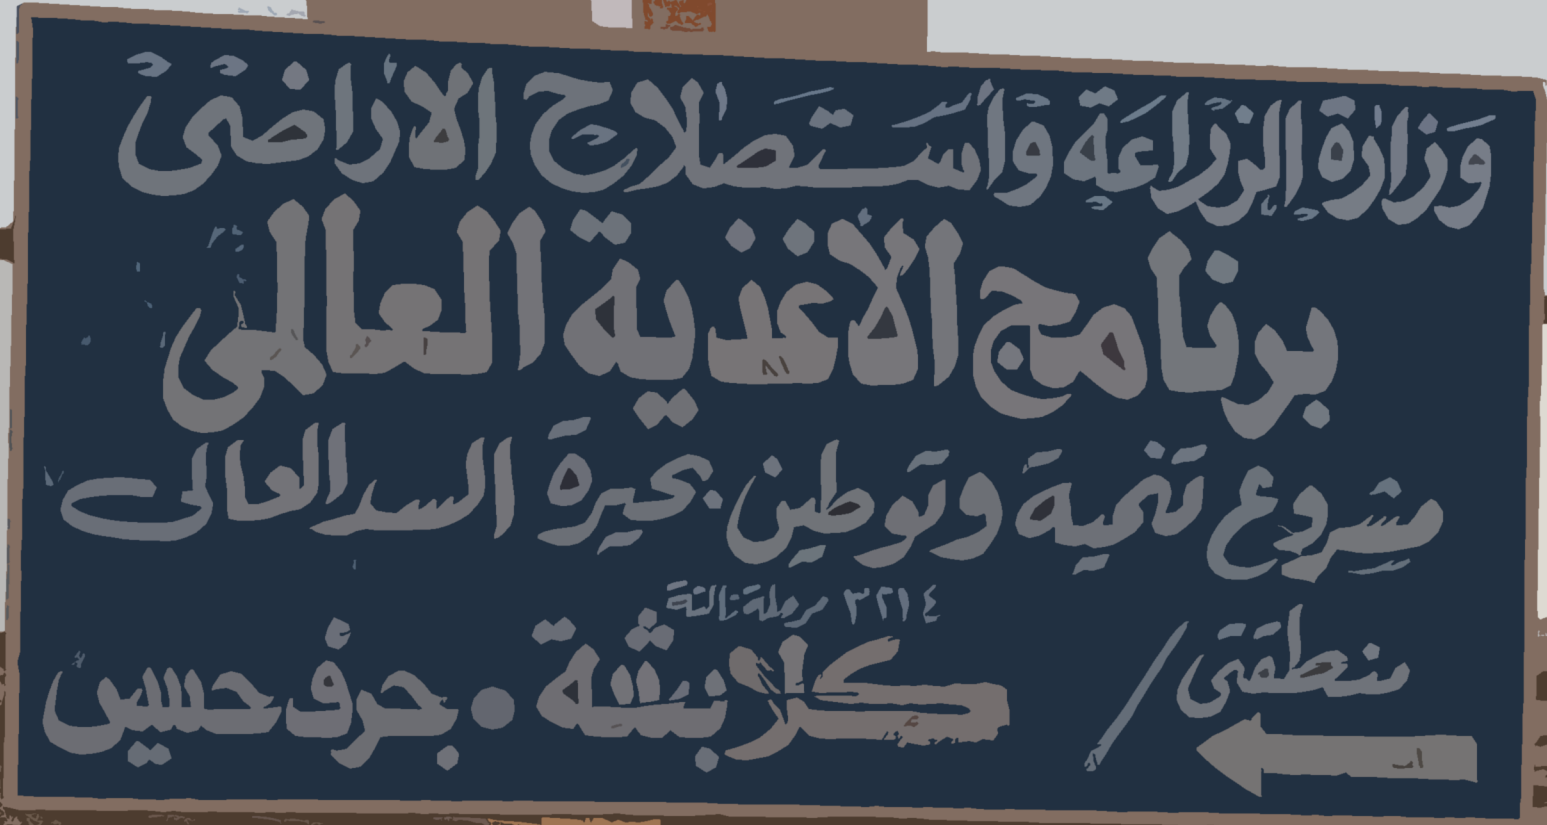 وَزارَةُ الزِرَاعَةِ وَاسْتَصْلَاحِ الْأَرَاضِى
برنامج الأغذية العالمى
مشروع تنمية وتوطين بحيرة السد العالى
٣٢١٤ مرحلة ثالثة
منطقتى / كلابشة . جرف حسين